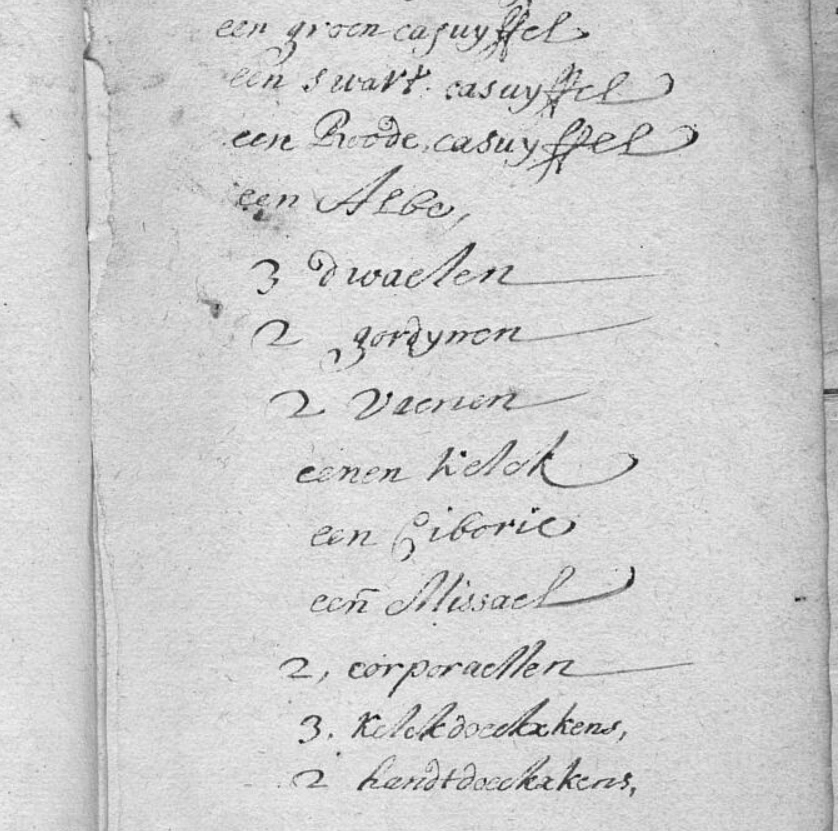 een groen casuyffel
een swart. casuyffel
een Roode casuyffel
een Albe,
3 dwaelen
2 gordynen
2 vaenen
eenen kelck
een Ciborie
een̄ Missael
2, corporaellen
3. kelckdoeckxkens,
2 handtdoeckxkens,